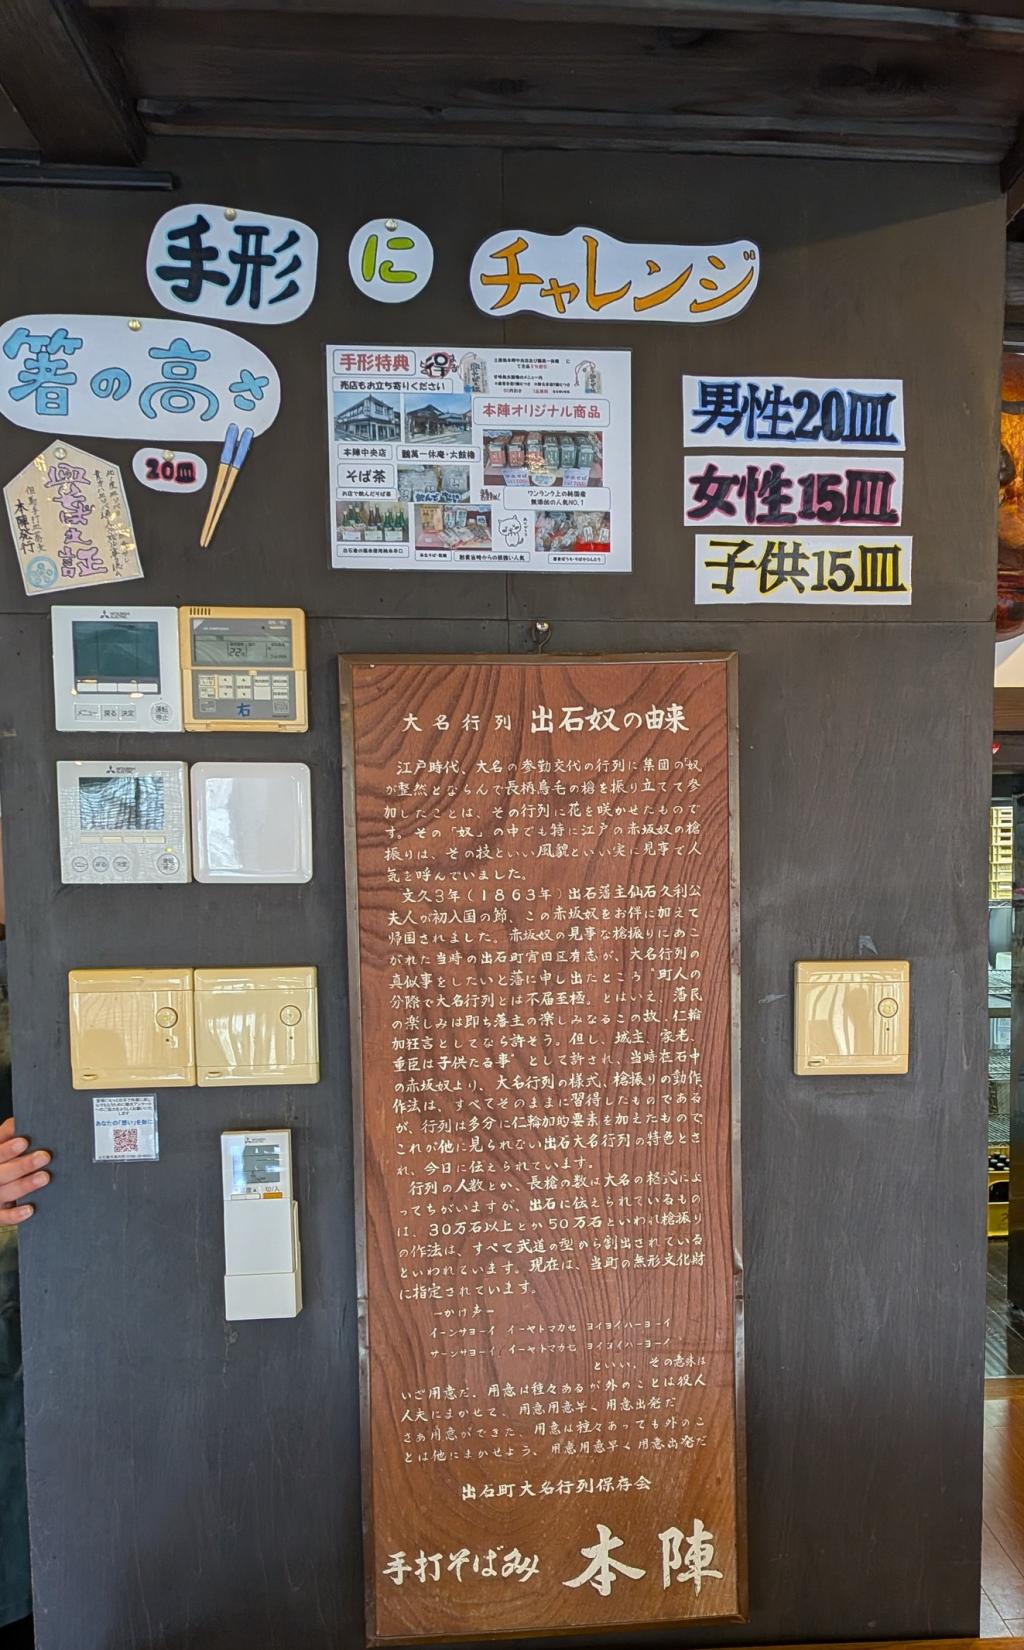 手形 に チャレンジ
箸の高さ
20皿
本陣発行
手形特典
売店もお立ち寄りください
本陣オリジナル商品
本陣中央店
鶴萬一休庵・太鼓楼
そば茶
お店で飲んだそば茶
ワンランク上の純国産
無添加の人気NO.1
男性20皿
女性15皿
子供15皿
MITSUBISHI ELECTRIC
メニュー 戻る 決定
運転/停止
22
右
MITSUBISHI ELECTRIC
メニュー 戻る 決定
運転/停止
あなたの「想い」を形に
MITSUBISHI ELECTRIC
切/入
大名行列 出石奴の由来
江戸時代、大名の参勤交代の行列に集団の“奴
が整然とならんで長柄鳥毛の槍を振り立てて参
加したことは、その行列に花を咲かせたもので
す。その「奴」の中でも特に江戸の赤坂奴の槍
振りは、その技といい風貌といい実に見事で人
気を呼んでいました。
文久3年(1863年)出石藩主仙石久利公
夫人が初入国の節、この赤坂奴をお伴に加えて
帰国されました。赤坂奴の見事な槍振りにあこ
がれた当時の出石町宵田区有志が、大名行列の
真似事をしたいと藩に申し出たところ“町人の
分際で大名行列とは不届至極。とはいえ、藩民
の楽しみは即ち藩主の楽しみなるこの故、仁輪
加狂言としてなら許そう。但し、城主、家老、
重臣は子供たる事”として許され、当時在石中
の赤坂奴より、大名行列の様式、槍振りの動作
作法は、すべてそのままに習得したものである
が、行列は多分に仁輪加的要素を加えたもので
これが他に見られない出石大名行列の特色とさ
れ、今日に伝えられています。
行列の人数とか、長槍の数は大名の格式によ
ってちがいますが、出石に伝えられているもの
は、30万石以上とか50万石といわれ槍振り
の作法は、すべて武道の型から割出されている
といわれています。現在は、当町の無形文化財
に指定されています。
ーかけ声ー
イーンサヨーイ イーヤトマカセ ヨイヨイハーヨーイ
サーンサヨーイ イーヤトマカセ ヨイヨイハーヨーイ
といい、その意味は
いざ用意だ、用意は種々あるが外のことは役人
人夫にまかせて、用意用意早く用意出発だ
さあ用意ができた、用意は種々あっても外のこ
とは他にまかせよう、用意用意早く用意出発だ
出石町大名行列保存会
手打そば処 本陣